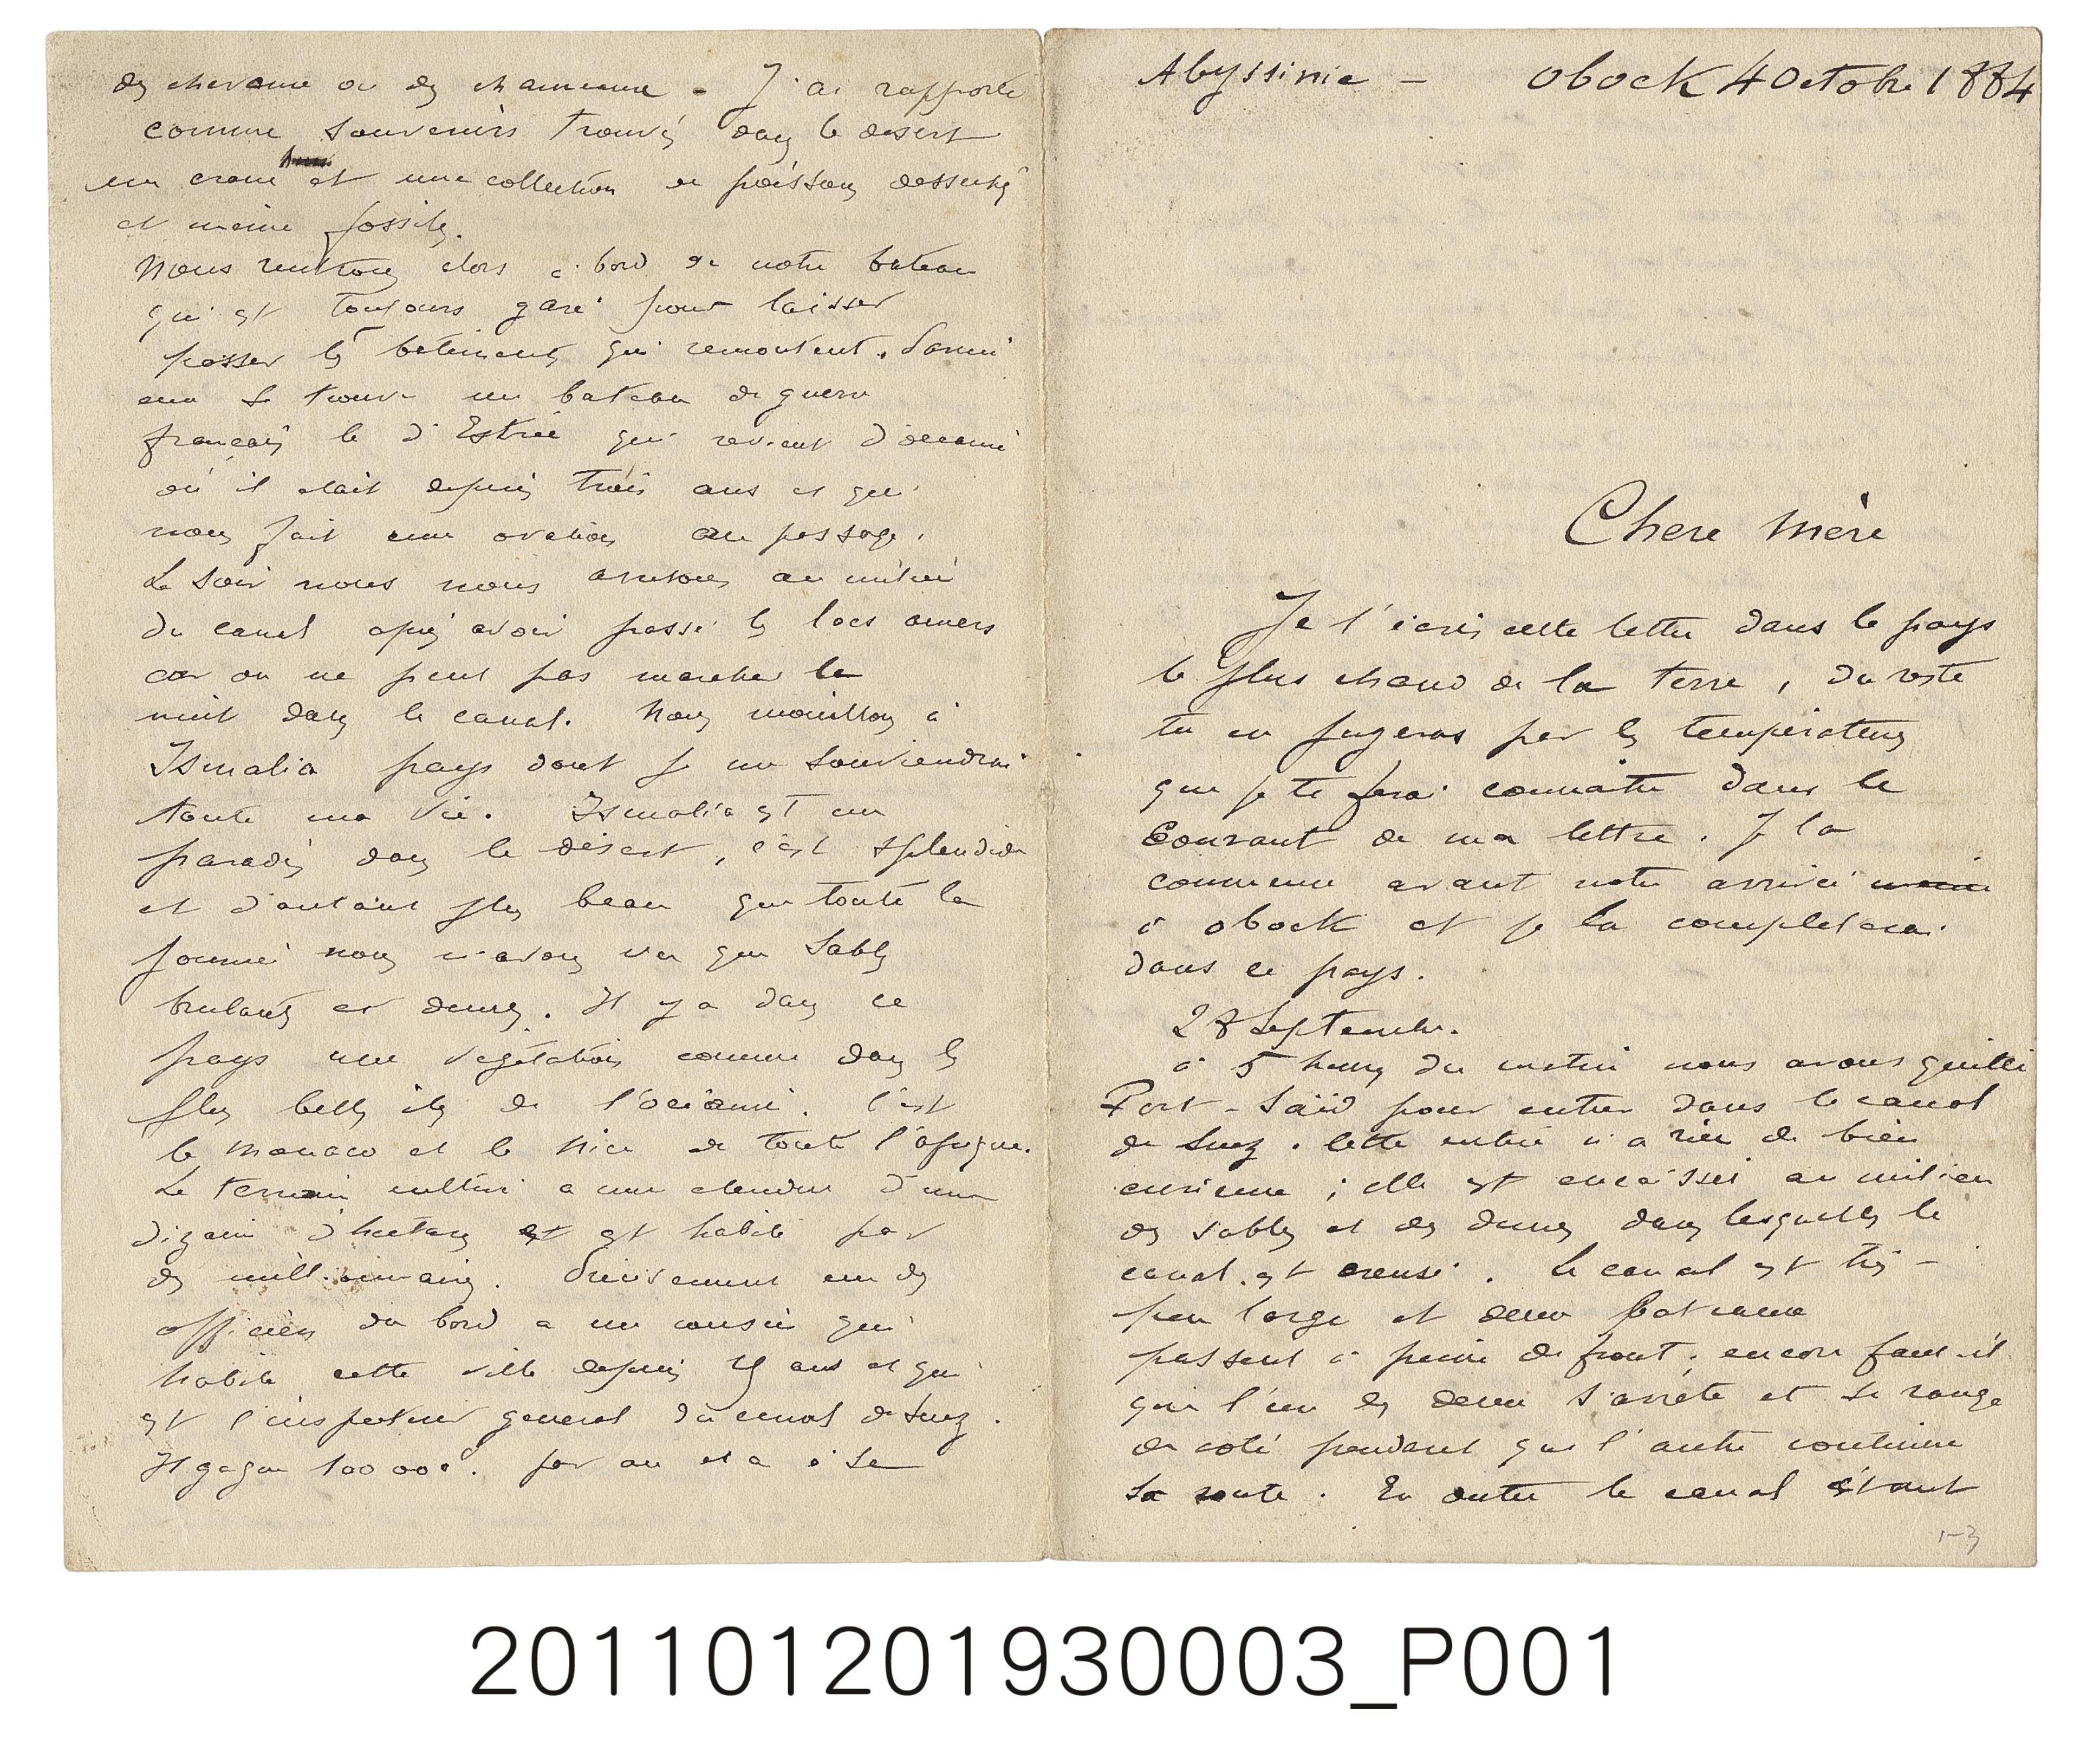 Abyssinie - Obock 4 Octobre 1884
Chere Mère
Je t'écris cette lettre dans le pays
le plus chaud de la terre, du reste
tu en jugeras par les températures
que je te ferai connaître dans le
Courant de ma lettre. Je la
commence avant notre arrivée
à obock et je la completerai
dans ce pays.
28 Septembre.
à 5 heures du matin nous avons quitté
Port-Saïd pour entrer dans le canal
de Suez. Cette entrée n'a rien de bien
curieux ; elle est encaissée au milieu
des sables et des dunes dans lesquelles le
canal est creusé. Le canal est très-
peu large et deux bateaux
passent à peine de front, encore faut-il
que l'un des deux s'arrête et se range
de coté pendant que l'autre continue
sa route. En outre le canal étant
1-3
des chevaux ou des chameaux - J'ai rapporté
comme souvenirs trouvés dans le desert
un crane et une collection de poissons desséchés
et même fossiles.
Nous rentrons alors à bord de notre bateau
qui est toujours garé pour laisser
passer les bâtiments qui remontent. Parmi
eux se trouve un bateau de guerre
français le d'Estrée qui revient d'océanie
où il était depuis trois ans et qui
nous fait une ovation au passage.
Le soir nous nous arretons au milieu
du canal après avoir passé les lacs amers
car on ne peut pas marcher la
nuit dans le canal. Nous mouillons à
Ismalia pays dont je me souviendrai
toute ma vie. Ismalia est un
paradis dans le désert, c'est splendide
et d'autant plus beau que toute la
journée nous n'avons vu que sables
brulants et dunes. Il y a dans ce
pays une végétation comme dans les
plus belles iles de l'océanie. C'est
le Monaco et le Nice de toute l'afrique.
Le terrain cultivé a une etendue d'une
dizaine d'hectares et est habité par
des millionnaires. Précisement un des
officiers du bord a un cousin qui
habite cette ville depuis ans et qui
est l'inspecteur general du canal de Suez.
Il gagne 100 000f. par an et a à sa
201101201930003_P001